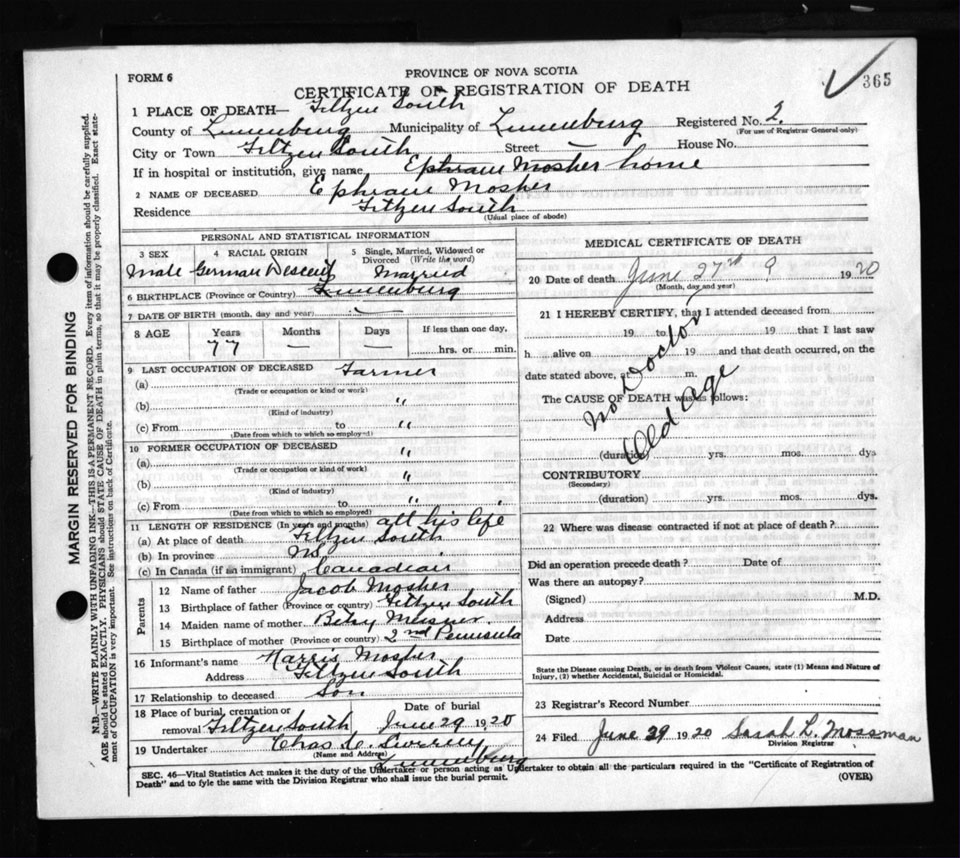 FORM 6
PROVINCE OF NOVA SCOTIA
CERTIFICATE OF REGISTRATION OF DEATH
365
1 PLACE OF DEATH— Feltzen South
County of Lunenburg Municipality of Lunenburg Registered No. 2.
(For use of Registrar General only)
City or Town Feltzen South Street — House No.
If in hospital or institution, give name Ephraim Mosher home
2 NAME OF DECEASED Ephraim Mosher
Residence Feltzen South
(Usual place of abode)
PERSONAL AND STATISTICAL INFORMATION
3 SEX Male
4 RACIAL ORIGIN German Descent
5 Single, Married, Widowed or Divorced (Write the word) Married
6 BIRTHPLACE (Province or Country) Lunenburg
7 DATE OF BIRTH (month, day and year) —
8 AGE Years 77 Months — Days — If less than one day, hrs. or min.
9 LAST OCCUPATION OF DECEASED Farmer
(a)
(Trade or occupation or kind or work)
(b) "
(Kind of industry)
(c) From to "
(Date from which to which so employed)
10 FORMER OCCUPATION OF DECEASED "
(a)
(Trade or occupation or kind of work)
(b) "
(Kind of industry)
(c) From to "
(Date from which to which so employed)
11 LENGTH OF RESIDENCE (In years and months) all his life
(a) At place of death Feltzen South
(b) In province NS
(c) In Canada (if an immigrant) Canadian
Parents
12 Name of father Jacob Mosher
13 Birthplace of father (Province or country) Feltzen South
14 Maiden name of mother Betsy Meisner
15 Birthplace of mother (Province or country) 2nd Peninsula
16 Informant's name Harris Mosher
Address Feltzen South
17 Relationship to deceased Son
18 Place of burial, cremation or removal Feltzen South Date of burial June 29 1920
19 Undertaker Chas
(Name and Address)
Lunenburg
MEDICAL CERTIFICATE OF DEATH
20 Date of death June 27rd 9 1920
(Month, day and year)
21 I HEREBY CERTIFY, that I attended deceased from
19 to 19 that I last saw
h alive on 19 and that death occurred, on the
date stated above, at m.
The CAUSE OF DEATH was as follows:
No Doctor
Old Age
(duration) yrs. mos. dys
CONTRIBUTORY
(Secondary)
(duration) yrs. mos. dys.
22 Where was disease contracted if not at place of death?
Did an operation precede death? Date of
Was there an autopsy?
(Signed) M.D.
Address
Date
State the Disease causing Death, or in death from Violent Causes, state (1) Means and Nature of
Injury, (2) whether Accidental, Suicidal or Homicidal.
23 Registrar's Record Number
24 Filed June 29 1920 Sarah L. Mossman
Division Registrar
SEC. 46—Vital Statistics Act makes it the duty of the Undertaker or person acting as Undertaker to obtain all the particulars required in the "Certificate of Registration of
Death" and to fyle the same with the Division Registrar who shall issue the burial permit. (OVER)
MARGIN RESERVED FOR BINDING
N.B.—WRITE PLAINLY WITH UNFADING INK—THIS IS A PERMANENT RECORD. Every item of information should be carefully supplied.
AGE should be stated EXACTLY. PHYSICIANS should STATE CAUSE OF DEATH in plain terms, so that it may be properly classified. Exact state-
ment of OCCUPATION is very important. See instructions on back of Certificate.